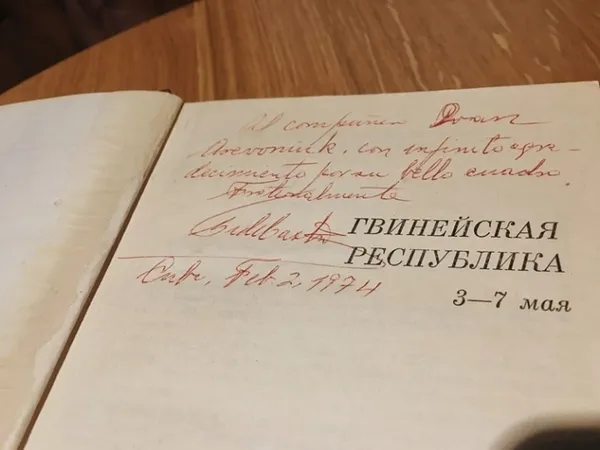 Al compañero Ivan
con infinito agra-
decimiento por su bello cuadro.
Fraternalmente
Fidel Castro
ГВИНЕЙСКАЯ
РЕСПУБЛИКА
Cuba, Feb. 2, 1974
3—7 мая